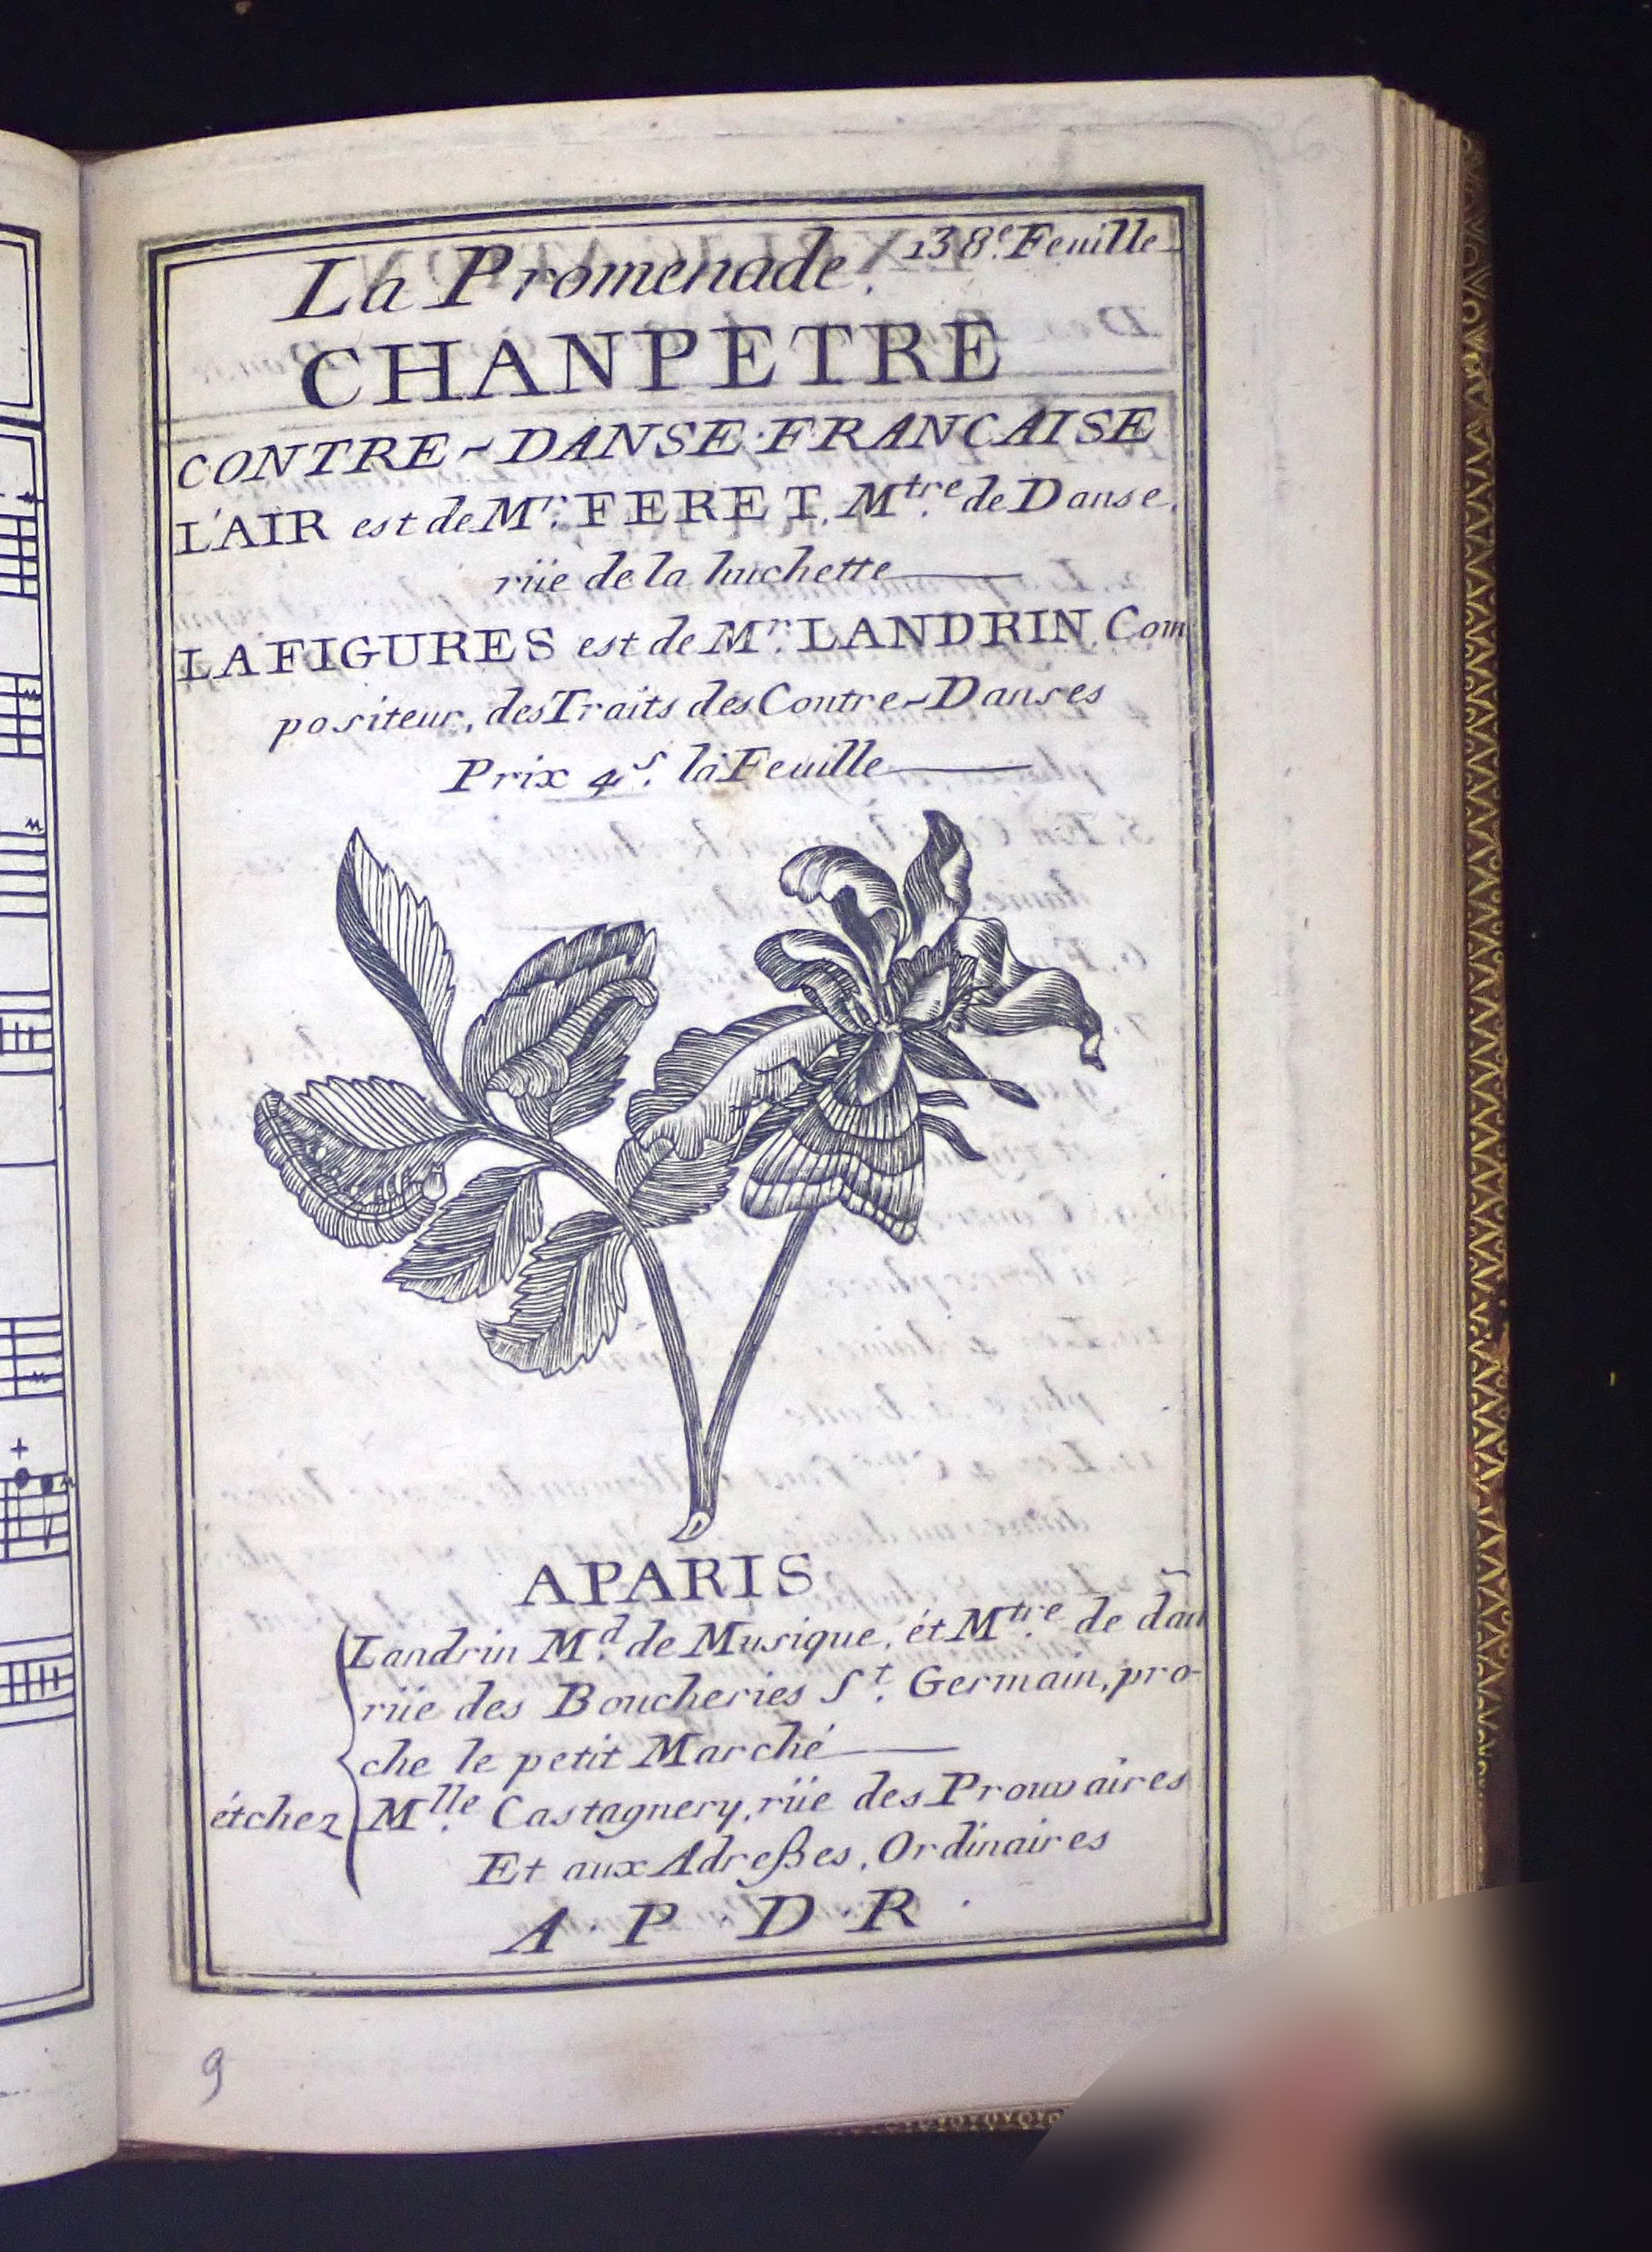 La Promenade. 138.e Feuille
CHANPETRE
CONTRE-DANSE FRANCAISE
L'AIR est de Mr. FERET. Mtre. de Danse.
rüe de la huchette
LA FIGURES est de Mr. LANDRIN Com
positeur, des Traits des Contre-Danses
Prix 4s. la Feuille
A PARIS
Landrin Md. de Musique, ét Mtre. de dañ
rüe des Boucheries St. Germain, pro-
che le petit Marché
étchez Mlle. Castagnery, rüe des Prouvaires
Et aux Adreßes, Ordinaires
A . P . D . R .
9